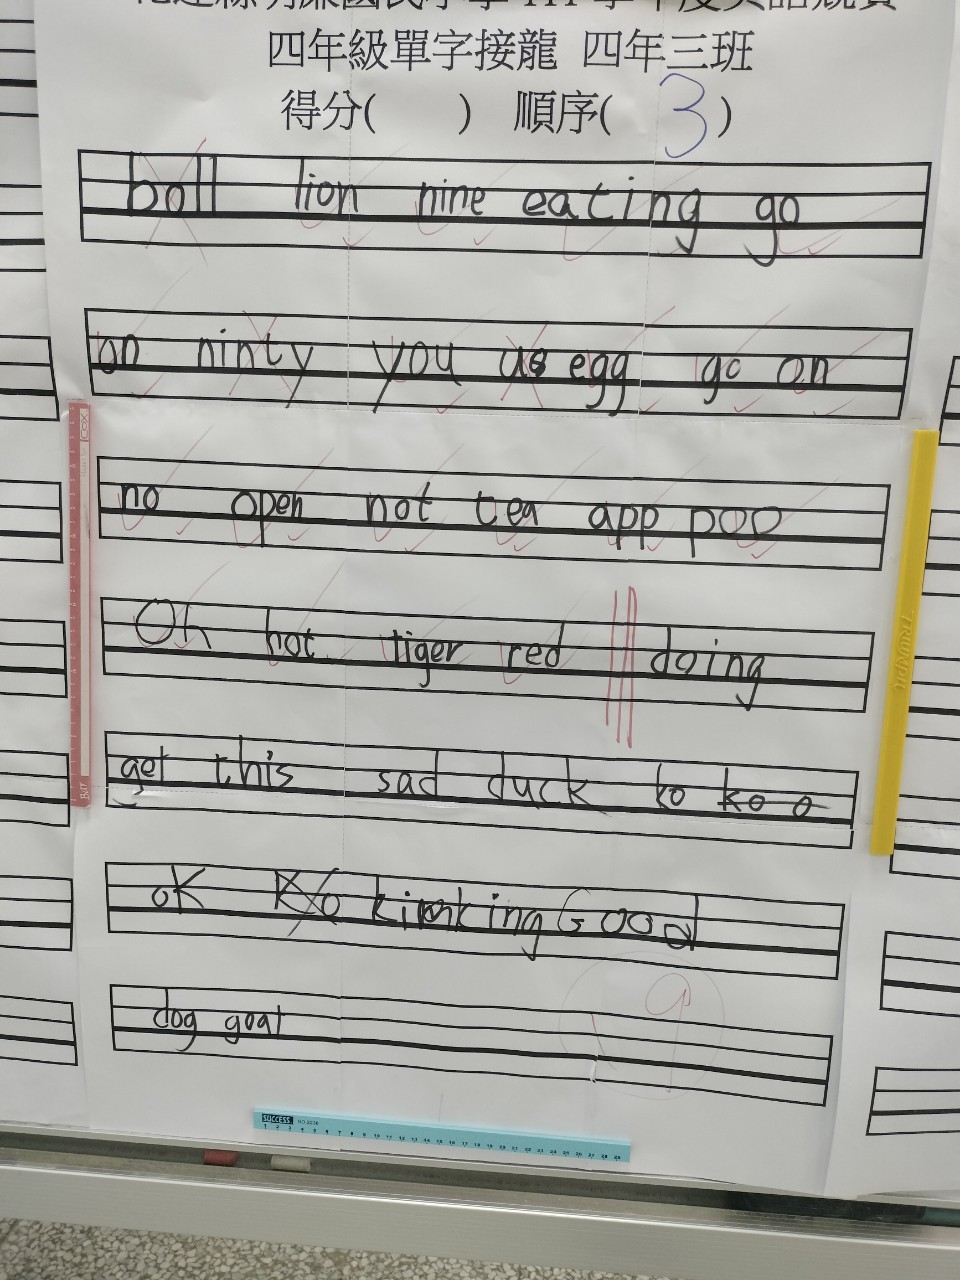 四年級單字接龍 四年三班
得分( ) 順序( 3 )
boll lion nine eating go
on ninty you us egg go on
no open not tea app pop
Oh hot tiger red doing
get this sad duck ko ko o
oK Ko king Good
dog goat
SUCCESS